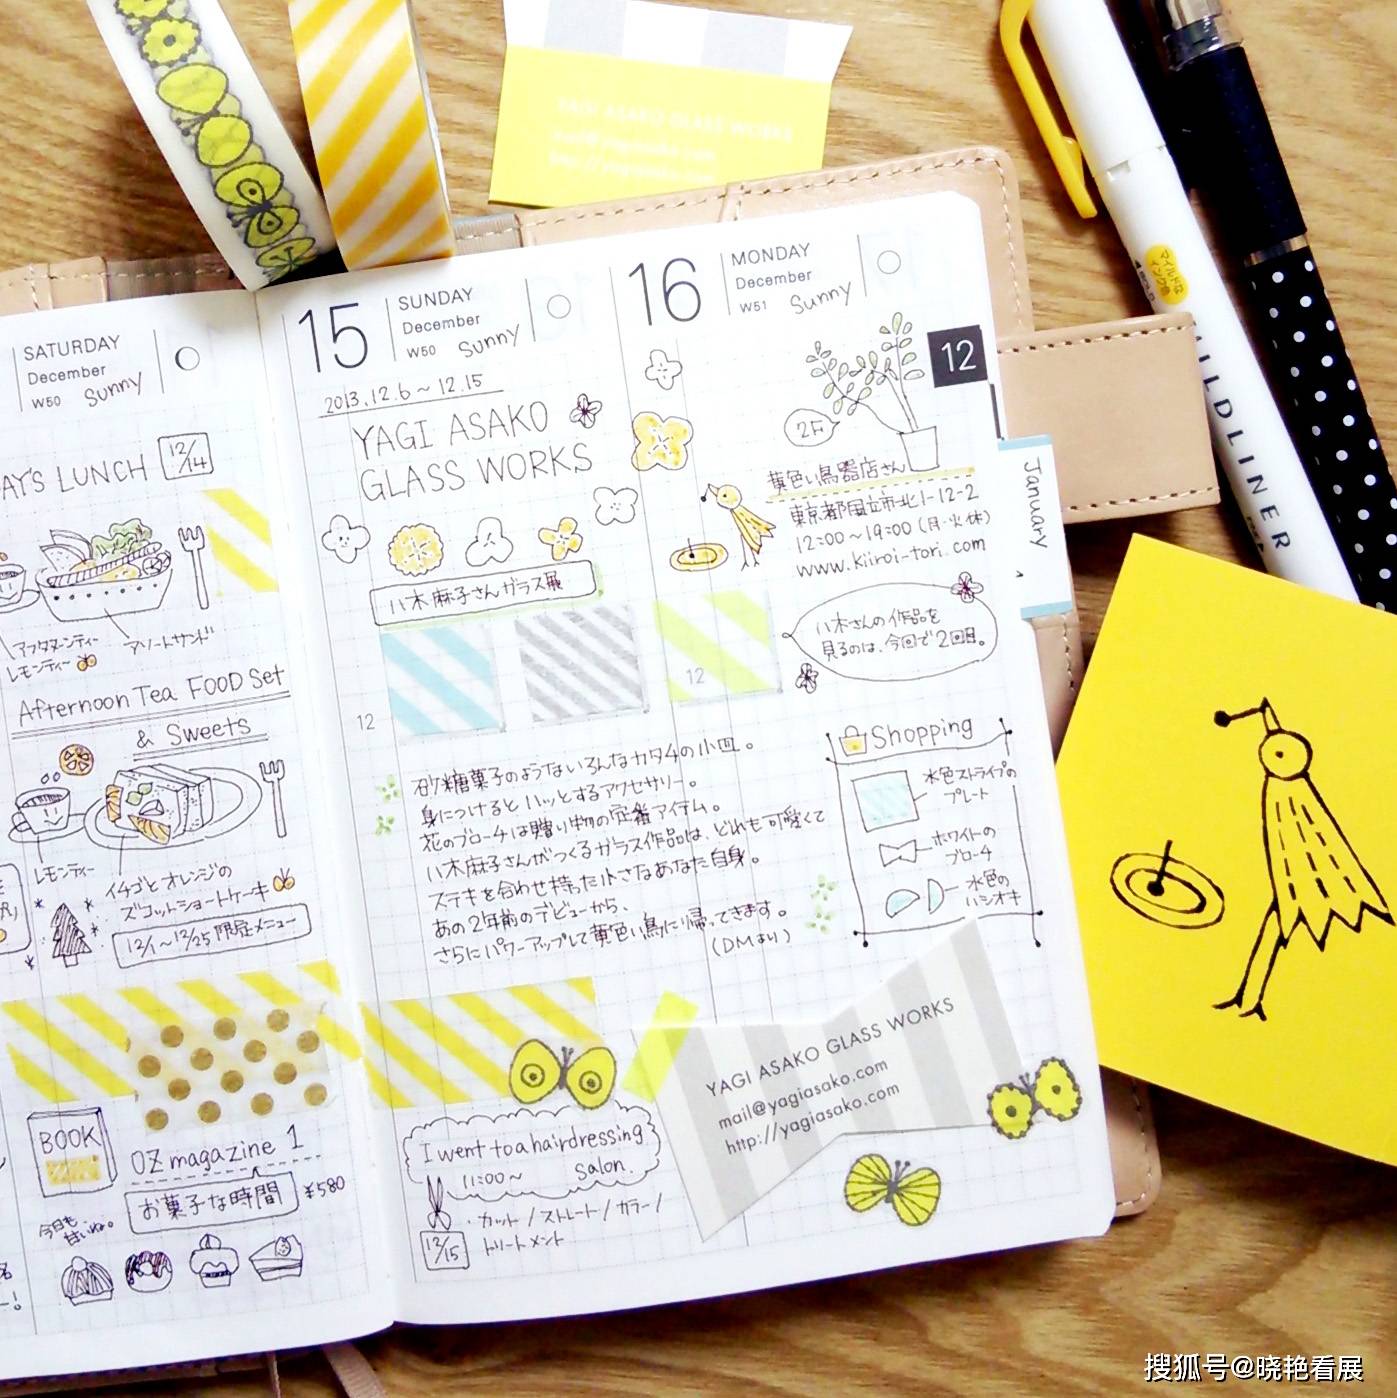 YAGI ASAKO GLASS WORKS
mail@yagiasako.com
http://yagiasako.com
SATURDAY
December
W50
Sunny
AY'S LUNCH
12/14
アフタヌーンティー
レモンティー
アソートサンド
Afternoon Tea FOOD Set
& Sweets
レモンティー
イチゴとオレンジの
ズコットショートケーキ
12/1〜12/25 限定メニュー
BOOK
OZ magazine 1
お菓子な時間
¥580
今日も
甘いね。
15
SUNDAY
December
W50
Sunny
2013.12.6〜12.15
YAGI ASAKO
GLASS WORKS
八木麻子さんガラス展
12
砂糖菓子のようないろんなカタチの小皿。
身につけるとハッとするアクセサリー。
花のブローチは贈り物の定番アイテム。
八木麻子さんがつくるガラス作品は、どれも可愛くて
ステキを合わせ持った小さなあなた自身。
あの2年前のデビューから、
さらにパワーアップして黄色い鳥に帰ってきます。
(DMより)
I went to a hairdressing
11:00〜 Salon.
・カット/ストレート/カラー/
トリートメント
12/15
16
MONDAY
December
W51
Sunny
12
January
2F
黄色い鳥器店さん
東京都国立市北1-12-2
12:00〜19:00 (月・火休)
www.kiiroi-tori.com
八木さんの作品を
見るのは、今回で2回目。
12
Shopping
水色ストライプの
プレート
ホワイトの
ブローチ
水色の
ハシオキ
YAGI ASAKO GLASS WORKS
mail@yagiasako.com
http://yagiasako.com
マイルドな
ILDLINER
搜狐号@晓艳看展